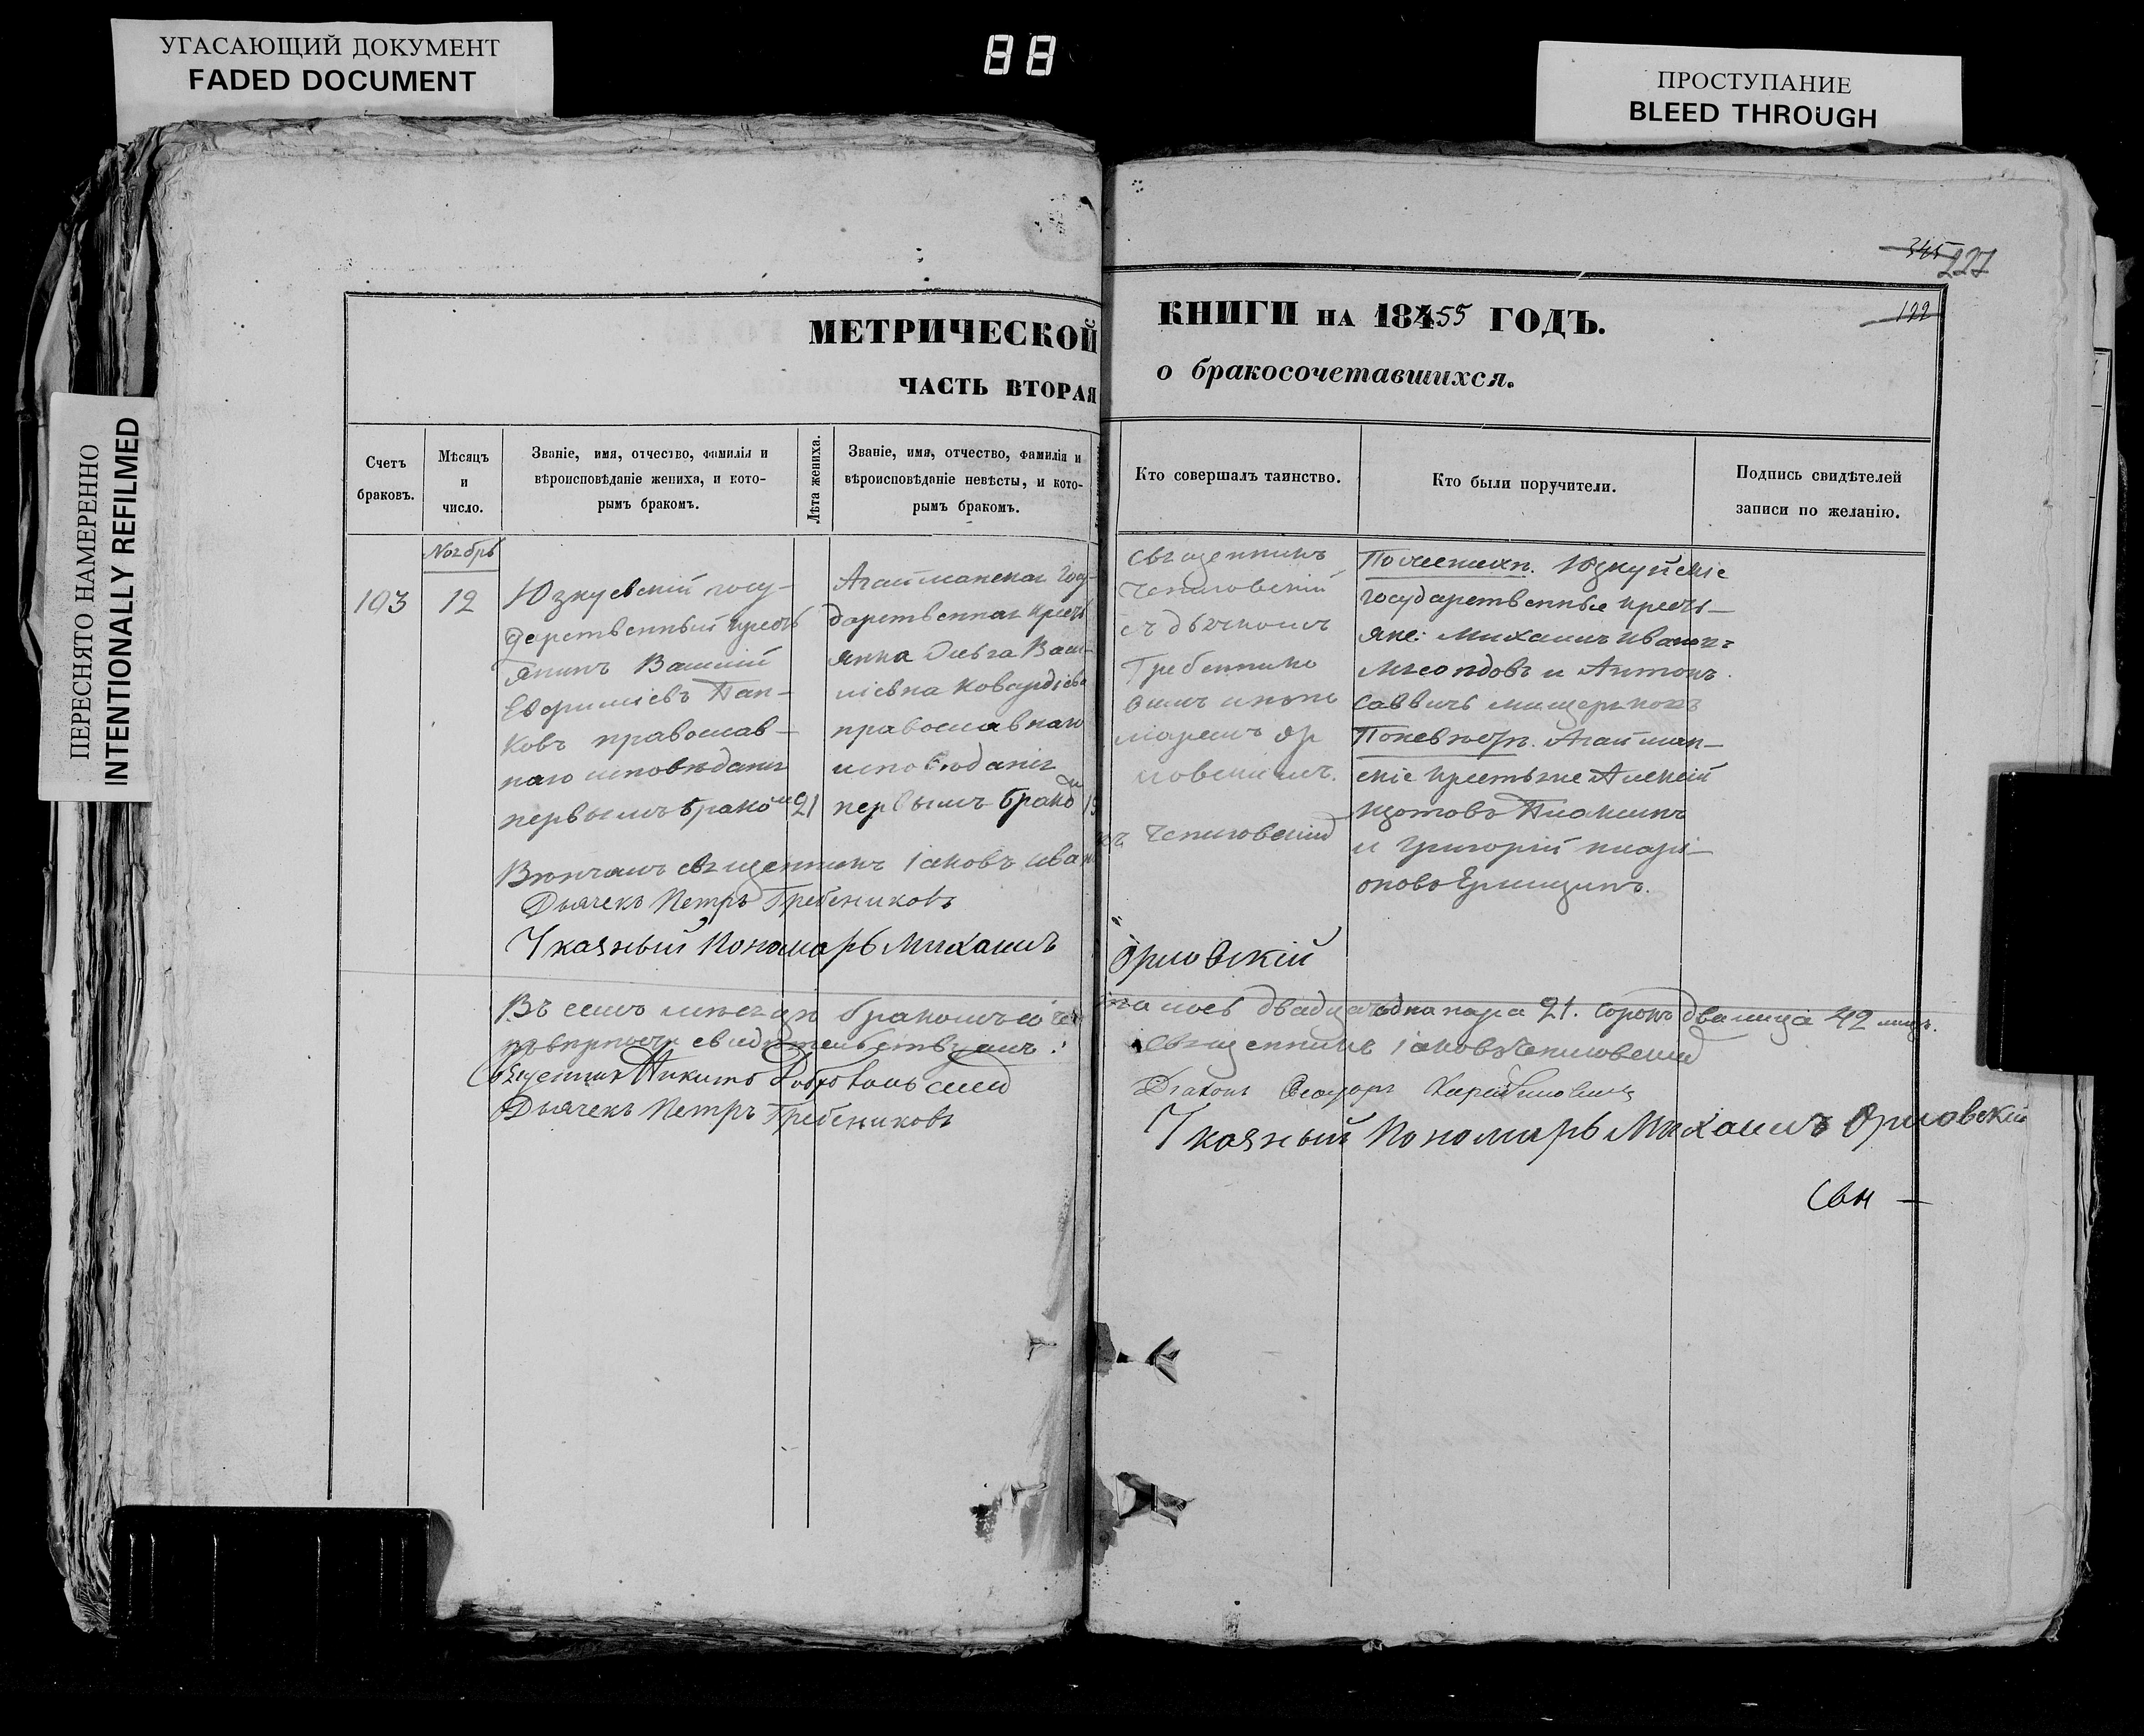 УГАСАЮЩИЙ ДОКУМЕНТ
FADED DOCUMENT
88
ПРОСТУПАНИЕ
BLEED THROUGH
ПЕРЕСНЯТО НАМЕРЕННО
INTENTIONALLY REFILMED
345 227
122
МЕТРИЧЕСКОЙ КНИГИ НА 18455 ГОДЪ.
ЧАСТЬ ВТОРАЯ о бракосочетавшихся.
Счетъ
браковъ.
Мѣсяцъ
и
число.
Званіе, имя, отчество, фамилія и
вѣроисповѣданіе жениха, и кото-
рымъ бракомъ.
Лѣта жениха.
Званіе, имя, отчество, фамилія и
вѣроисповѣданіе невѣсты, и кото-
рымъ бракомъ.
Кто совершалъ таинство.
Кто были поручители.
Подпись свидѣтелей
записи по желанію.
Ноябрь
103
12
Юзкуевскій госу-
дарственный кресть
янинъ Василій
Евфиміевъ Пан-
ковъ православ-
наго исповѣданія
первымъ бракомъ
21
Агайманская Госу-
дарственная кресть
янка Ольга Васи-
ліевна Ковардіева
православнаго
исповѣданія
первымъ бракомъ
Священникъ
Чепиговскій
съ дьячкомъ
Гребеннико
вымъ и поно
маремъ Ор
ловскимъ.
По женихѣ. Юзкуйскіе
государственные кресть-
яне: Михаилъ Иванов:
и Антонъ
Саввичь
По невѣстѣ. Агайман-
скіе крестьяне Алексій
и Григорій
Вѣнчалъ священникъ Іаковъ Чепиговскій
Дьячекъ Петръ Гребениковъ
Указный Пономарь Михаилъ Орловскій
Въ семъ мѣсяцѣ бракомъ соче талось двадцать одна пара 21. сорокъ два лица 42 лица.
свидѣтельствуемъ:
Священникъ Никита
Священникъ Іаковъ Чепиговскій
Дьячекъ Петръ Гребениковъ
Діаконъ Феодоръ
Указный Пономарь Михаилъ Орловскій